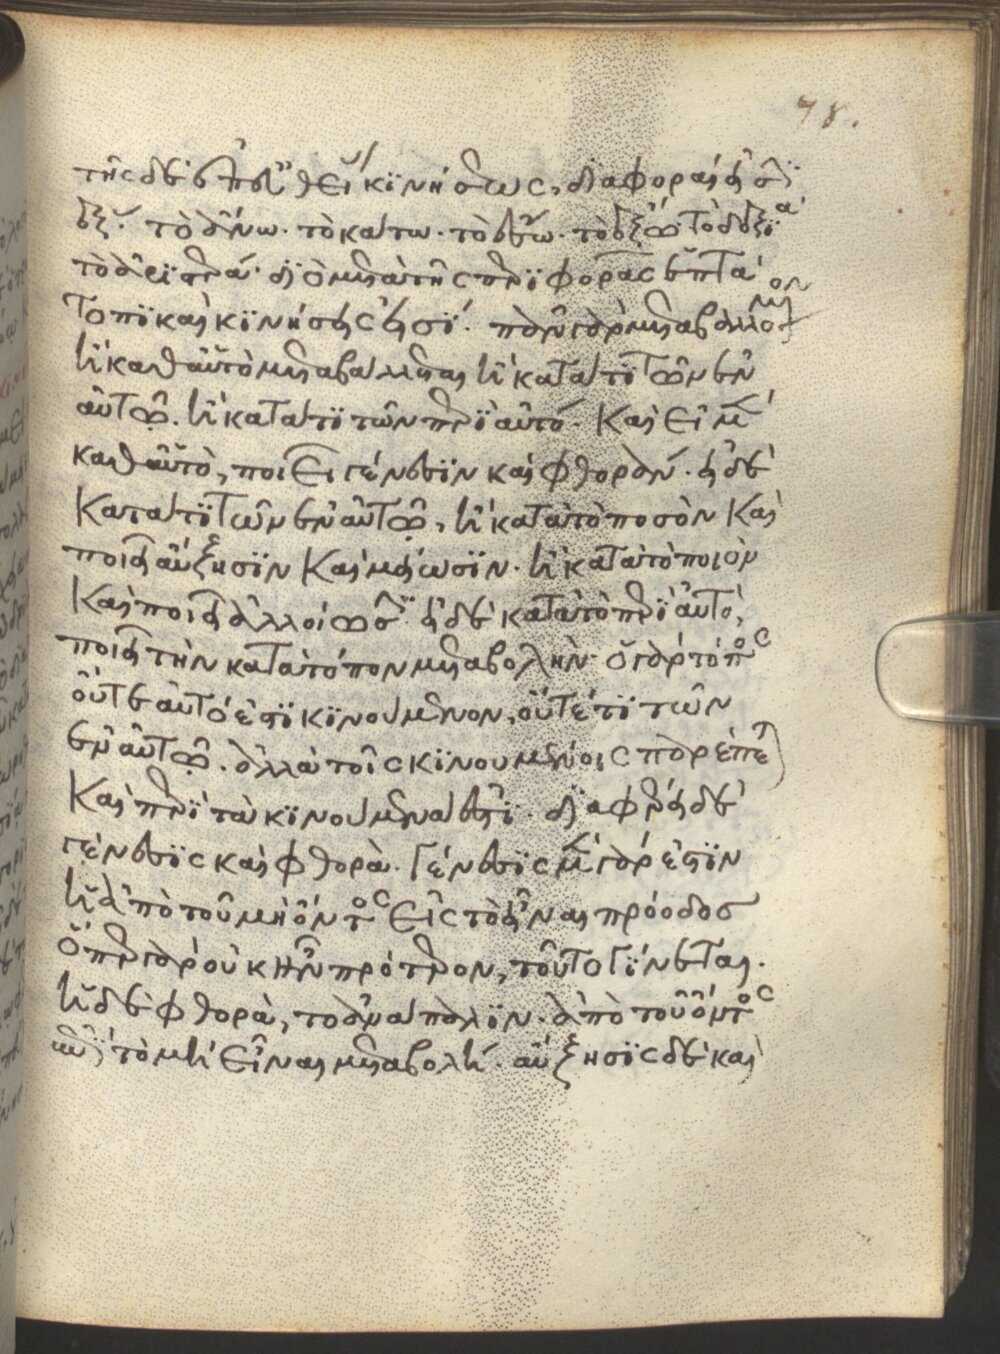 78.
τῆς δὲ ἐπ' εὐθείας κινήσεως, διαφοραί εἰσιν
ἕξ· τὸ ἄνω· τὸ κάτω· τὸ ἔσω· τὸ ἔξω· τὸ δεξιά·
τὸ ἀριστερά· διὸ μετὰ τῆς περιφορᾶς ἑπτὰ
τοπικαὶ κινήσεις εἰσί· πᾶν γὰρ μεταβάλλον
ἢ καθ' αὑτὸ μεταβάλλεται ἢ κατά τι τῶν ἐν
αὐτῷ· ἢ κατά τι τῶν περὶ αὐτό· καὶ εἰ μὲν
καθ' αὑτὸ, ποιεῖ γένεσιν καὶ φθοράν· εἰ δὲ
κατά τι τῶν ἐν αὐτῷ, ἢ κατὰ τὸ ποσὸν καὶ
ποιεῖ αὔξησιν καὶ μείωσιν· ἢ κατὰ τὸ ποιὸν
καὶ ποιεῖ ἀλλοίωσιν· εἰ δὲ κατὰ τὸ περὶ αὐτὸ,
ποιεῖ τὴν κατὰ τόπον μεταβολήν· ὁ γὰρ τόπος
οὔτε αὐτό ἐστι κινούμενον, οὔτέ τι τῶν
ἐν αὐτῷ· ἀλλὰ τοῖς κινουμένοις παρέπεται
καὶ περὶ τὰ κινούμενά ἐστι· διαφέρει δὲ
γένεσις καὶ φθορὰ· γένεσις μὲν γάρ ἐστιν
ἡ ἀπὸ τοῦ μὴ ὄντος εἰς τὸ εἶναι πρόοδος
ὅπερ γὰρ οὐκ ἦν πρότερον, τοῦτο γίνεται·
ἡ δὲ φθορὰ, τὸ ἀνάπαλιν· ἀπὸ τοῦ ὄντος
εἰς τὸ μὴ εἶναι μεταβολή· αὔξησις δὲ καὶ